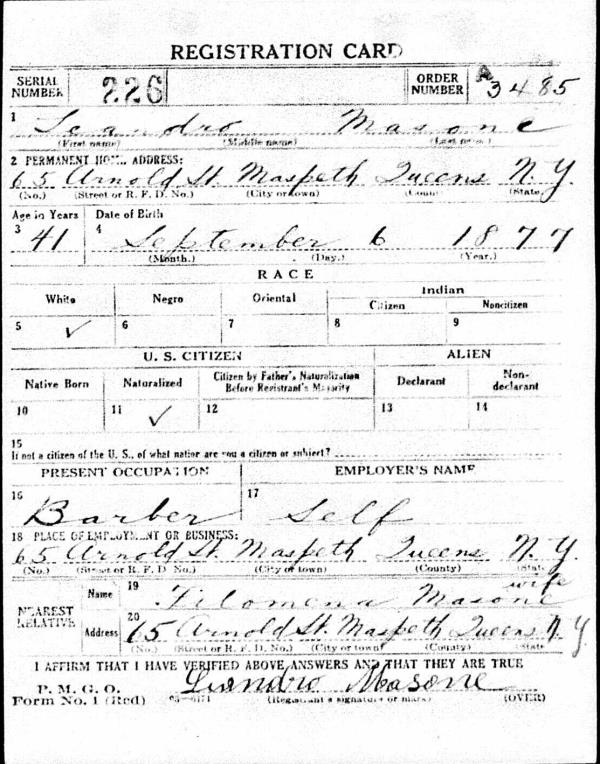 REGISTRATION CARD
SERIAL NUMBER 226 ORDER NUMBER A 3485
1 Leandro Masone
(First name) (Middle name) (Last name)
2 PERMANENT HOME ADDRESS:
65 Arnold St. Maspeth Queens N.Y.
(No.) (Street or R. F. D. No.) (City or town) (County) (State)
Age in Years Date of Birth
3 41 4 September 6 1877
(Month.) (Day.) (Year.)
RACE
White Negro Oriental Indian
Citizen Noncitizen
5 ✓ 6 7 8 9
U. S. CITIZEN ALIEN
Native Born Naturalized Citizen by Father's Naturalization Before Registrant's Majority Declarant Non-declarant
10 11 ✓ 12 13 14
15
If not a citizen of the U. S., of what nation are you a citizen or subject?
PRESENT OCCUPATION EMPLOYER'S NAME
16 Barber 17 Self
18 PLACE OF EMPLOYMENT OR BUSINESS:
65 Arnold St. Maspeth Queens N.Y.
(No.) (Street or R. F. D. No.) (City or town) (County) (State)
NEAREST RELATIVE
Name 19 Filomena Masone wife
Address 20 65 Arnold St. Maspeth Queens N.Y.
(No.) (Street or R. F. D. No.) (City or town) (County) (State)
I AFFIRM THAT I HAVE VERIFIED ABOVE ANSWERS AND THAT THEY ARE TRUE
P. M. G. O.
Form No. 1 (Red) 03-6171 Leandro Masone
(Registrant's signature or mark) (OVER)